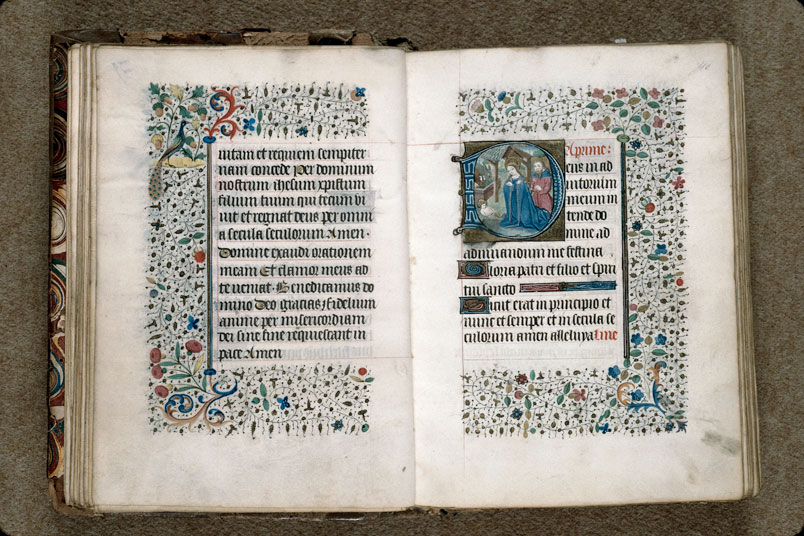 uitam et requiem sempiter
nam concede Per dominum
nostrum ihesum xpistum
filium tuum qui tecum vi
uit et regnat deus per omni
a secula seculorum Amen.
Domine exaudi orationem
meam Et clamor meus ad
te ueniat. Benedicamus do
mino Deo gracias. Fidelium
anime per misericordiam
dei sine fine requiescant in
pace Amen
prime:
Deus in ad
iutorium
meum in
tende do
mine ad
adiuuandum me festina
Gloria patri et filio et spiri
tui sancto
Sicut erat in principio et
nunc et semper et in secula se
culorum amen alleluya